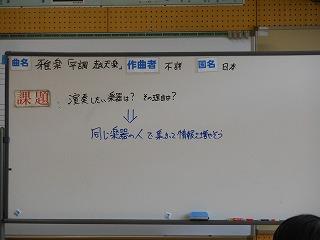 曲名 雅楽「平調 越天楽」 作曲者 不詳 国名 日本
課題 演奏したい楽器は? その理由は?
⇓
同じ楽器の人で集まって情報を増やそう